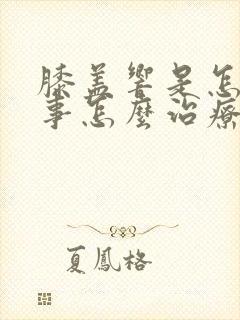 膝盖響是怎
事怎麼治療
夏鳳格